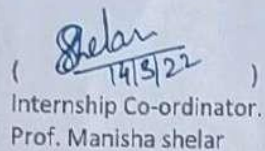 Shelar
( 14/3/22 )
Internship Co-ordinator.
Prof. Manisha shelar